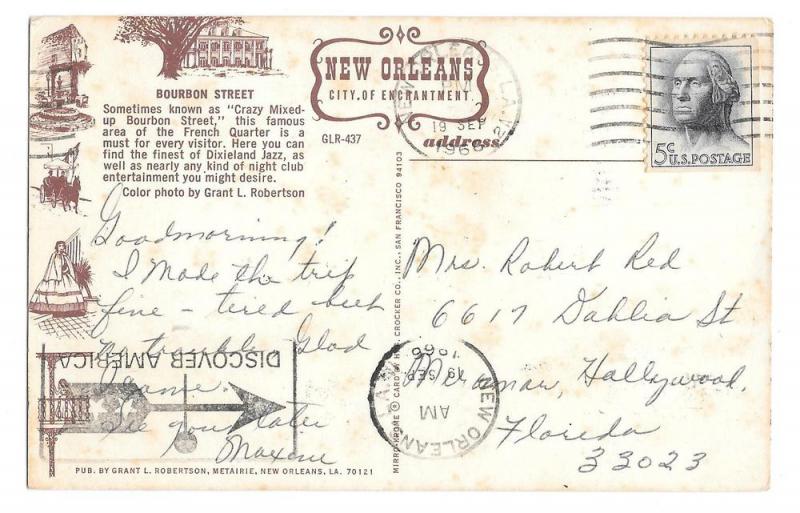 BOURBON STREET
Sometimes known as "Crazy Mixed-
up Bourbon Street," this famous
area of the French Quarter is a
must for every visitor. Here you can
find the finest of Dixieland Jazz, as
well as nearly any kind of night club
entertainment you might desire.
Color photo by Grant L. Robertson
NEW ORLEANS
CITY OF ENCHANTMENT
GLR-437
address
NEW ORLEANS LA.
PM
19 SEP
1966
5c U.S. POSTAGE
Goodmorning!
I Made the trip
fine - tired but
no trouble Glad
I came.
See you later
Maxine
DISCOVER AMERICA
MIRRO-KROME ® CARD BY H.S. CROCKER CO., INC., SAN FRANCISCO 94103
Mrs. Robert Red
6617 Dahlia St
Miramar, Hollywood,
Florida
33023
NEW ORLEANS, LA.
AM
19 SEP
1966
PUB. BY GRANT L. ROBERTSON, METAIRIE, NEW ORLEANS, LA. 70121